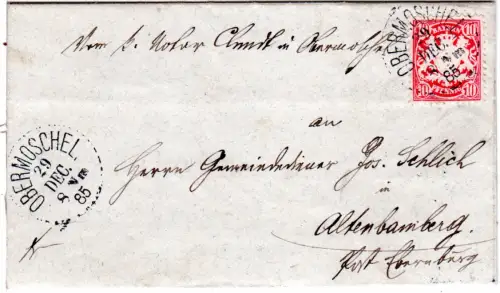 Vom k. Notar in Obermoschel
OBERMOSCHEL
DEC.
85
BAYERN
10 10
PFENNIG
an
OBERMOSCHEL.
29
DEC.
8 Vm
85
Herrn Gemeindediener Jos. Schlich
in
Altenbamberg.
Post Ebernburg